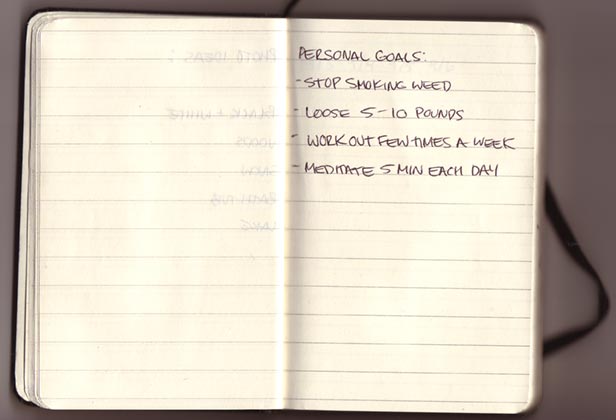 PERSONAL GOALS:
- STOP SMOKING WEED
- LOOSE 5-10 POUNDS
- WORK OUT FEW TIMES A WEEK
- MEDITATE 5 MIN EACH DAY
PHOTO IDEAS:
BLACK + WHITE